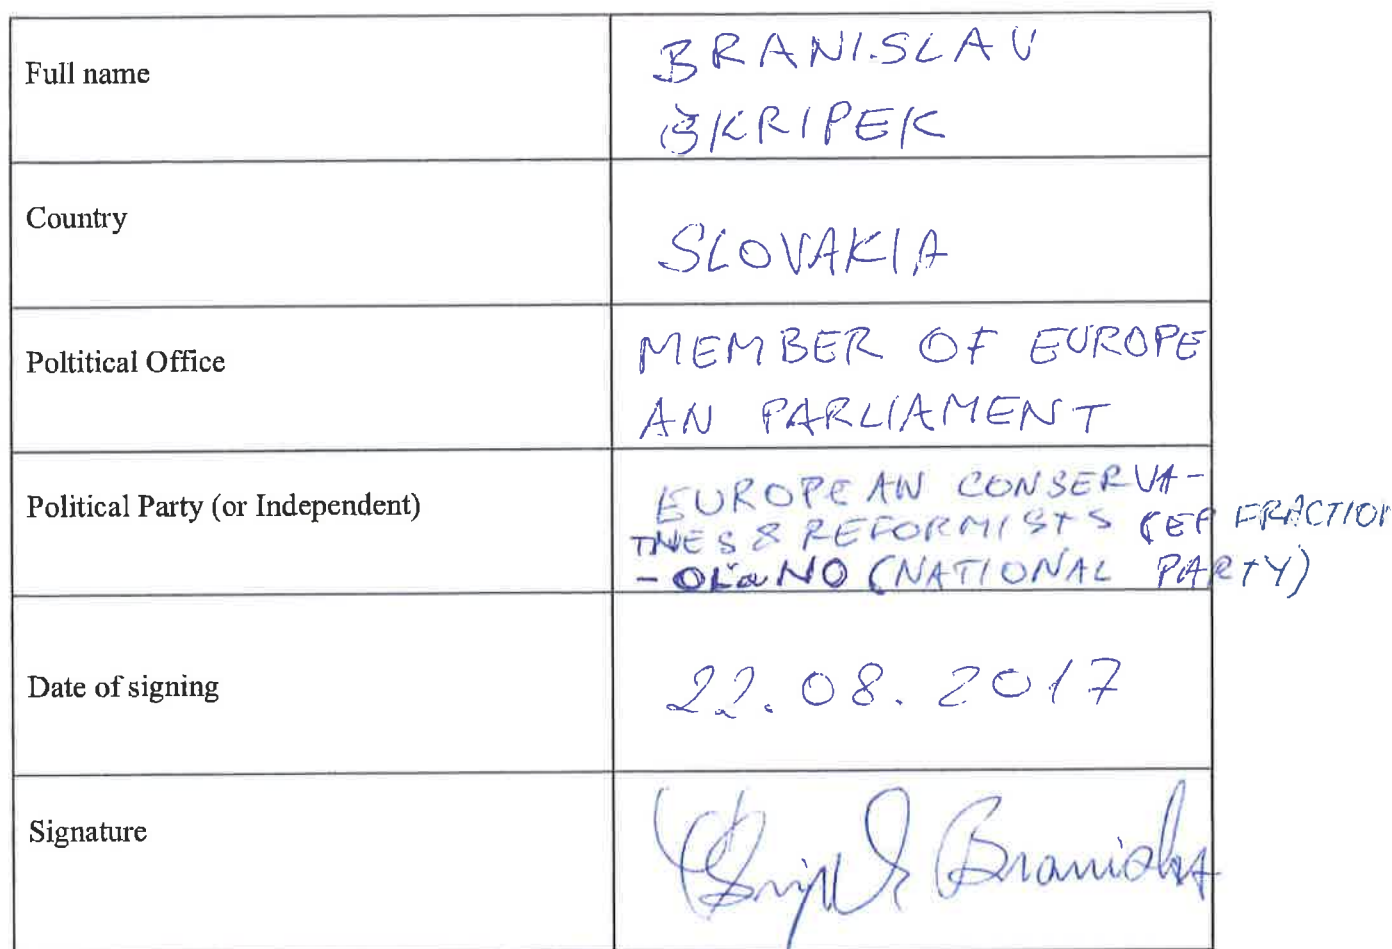 Full name
BRANISLAV
ŠKRIPEK
Country
SLOVAKIA
Poltitical Office
MEMBER OF EUROPE
AN PARLIAMENT
Political Party (or Independent)
EUROPEAN CONSERVA-
TIVES & REFORMISTS (EP FRACTION
- OĽaNO (NATIONAL PARTY)
Date of signing
22.08.2017
Signature
Škripek Branislav